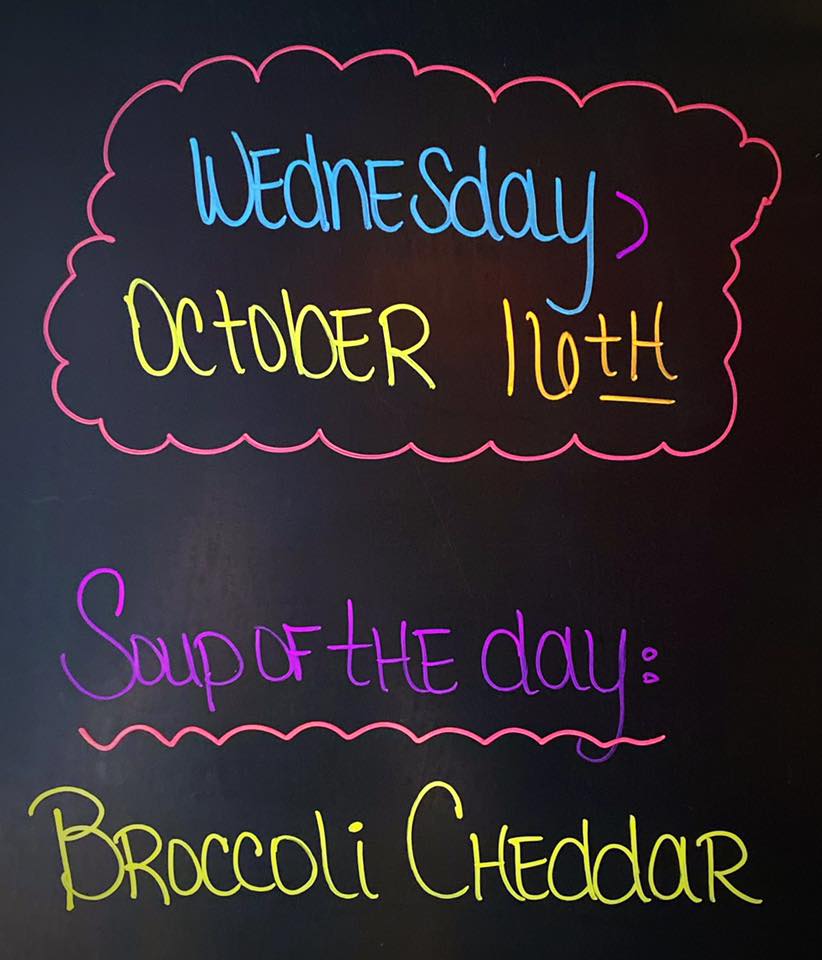 WEdnESday,
OctobER 16tH
Soup OF tHE day:
BRoccoli CHEddaR